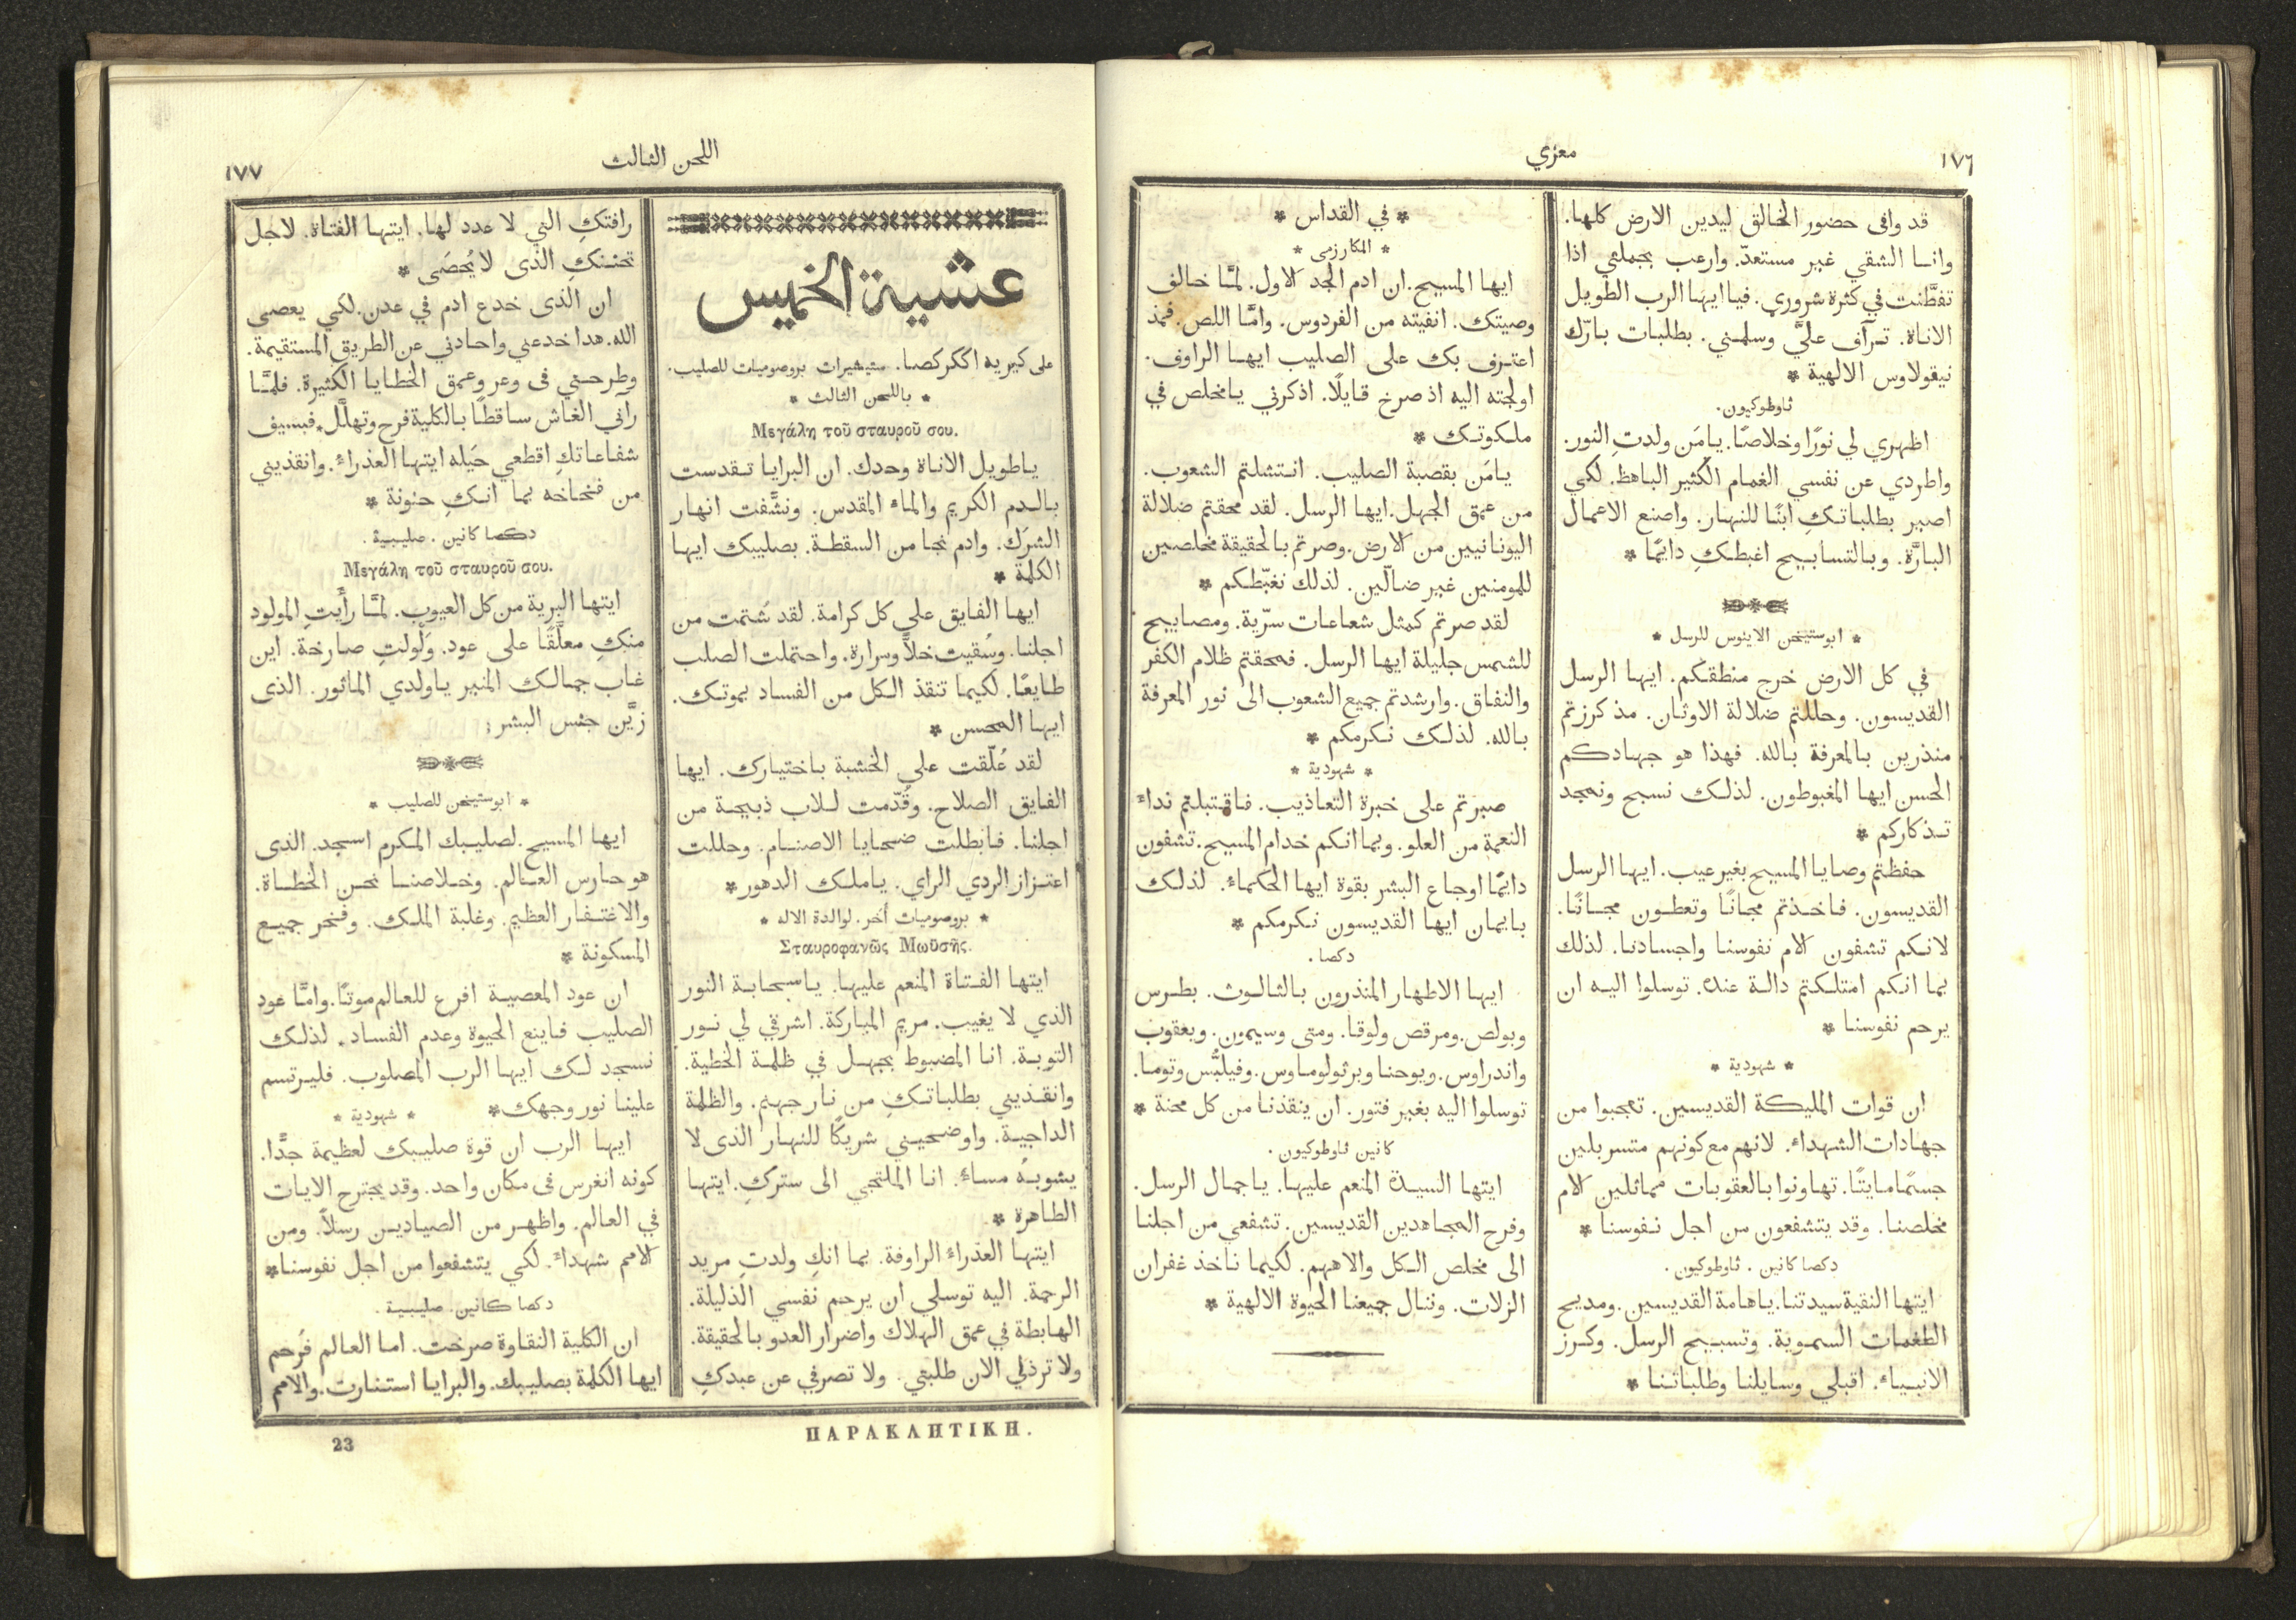 ١٧٦
معزي
قد وافى حضور الخالق ليدين الارض كلها.
وانا الشقي غير مستعدّ. وارعب بجملتي اذا
تفطَّنت في كثرة شروري. فيا ايها الرب الطويل
الاناة. ترآف عليَّ وسلمني. بطلبات بارّك
نيقولاوس الالهية *
ثاوطوكيون.
اظهري لي نورًا وخلاصًا. يامَن ولدتِ النور.
واطردي عن نفسي الغمام الكثير الباهظ. لكي
اصير بطلباتكِ ابنًا للنهار. واصنع الاعمال
البارَّة. وبالتسابيح اغبطكِ دايمًا *
* ابوستيخن الاينوس للرسل *
في كل الارض خرج منطقكم. ايها الرسل
القديسون. وحللتم ضلالة الاوثان. مذ كرزتم
منذرين بالمعرفة بالله. فهذا هو جهادكم
الحسن ايها المغبوطون. لذلك نسبح ونمجد
تذكاركم *
حفظتم وصايا المسيح بغير عيب. ايها الرسل
القديسون. فاخذتم مجانًا وتعطون مجانًا.
لانكم تشفون الام نفوسنا واجسادنا. لذلك
بما انكم امتلكتم دالة عنده. توسلوا اليه ان
يرحم نفوسنا *
* شهودية *
ان قوات المليكة القديسين. تعجبوا من
جهادات الشهداء. لانهم مع كونهم متسربلين
جسمًا مايتًا. تهاونوا بالعقوبات مماثلين الام
مخلصنا. وقد يتشفعون من اجل نفوسنا *
دكصا كانين. ثاوطوكيون.
ايتها النقية سيدتنا. ياهامة القديسين. ومديح
الطغمات السموية. وتسبيح الرسل. وكرز
الانبياء. اقبلي وسايلنا وطلباتنا *
* في القداس *
* المكارزمى *
ايها المسيح. ان ادم الجد الاول. لمَّا خالف
وصيتك. انفيته من الفردوس. وامَّا اللص. فمذ
اعترف بك على الصليب ايها الراوف.
اولجته اليه اذ صرخ قايلًا. اذكرني يامخلص في
ملكوتك *
يامَن بقصبة الصليب. انتشلتم الشعوب.
من عمق الجهل. ايها الرسل. لقد محقتم ضلالة
اليونانيين من الارض. وصرتم بالحقيقة مخلصين
للمومنين غير ضالّين. لذلك نغبّطكم *
لقد صرتم كمثل شعاعات سرّية. ومصابيح
للشمس جليلة ايها الرسل. فمحقتم ظلام الكفر
والنفاق. وارشدتم جميع الشعوب الى نور المعرفة
بالله. لذلك نكرمكم *
* شهودية *
صبرتم على خبرة التعاذيب. فاقتبلتم نداء
النعمة من العلو. وبما انكم خدام المسيح. تشفون
دايمًا اوجاع البشر بقوة ايها الحكماء. لذلك
بايمان ايها القديسون نكرمكم *
دكصا.
ايها الاطهار المنذرون بالثالوث. بطرس
وبولص. ومرقص ولوقا. ومتى وسيمون. ويعقوب
واندراوس. ويوحنا وبرثولوماوس. وفيلبُّس وتوما.
توسلوا اليه بغير فتور. ان ينقذنا من كل محنة *
كانين ثاوطوكيون.
ايتها السيدة المنعم عليها. ياجمال الرسل.
وفرح المجاهدين القديسين. تشفعي من اجلنا
الى مخلص الكل والاههم. لكيما ناخذ غفران
الزلات. وننال جميعنا الحيوة الالهية *
اللحن الثالث
١٧٧
عشية الخميس
على كيريه اككركصا. ستيشيرات بروصوميات للصليب.
* باللحن الثالث *
Μεγάλη τοῦ σταυροῦ σου.
ياطويل الاناة وحدك. ان البرايا تقدست
بالدم الكريم والماء المقدس. ونشَّفت انهار
الشرك. وادم نجا من السقطة. بصليبك ايها
الكلمة *
ايها الفايق على كل كرامة. لقد شُتمت من
اجلنا. وسُقيت خلاًّ ومرارة. واحتملت الصلب
طايعًا. لكيما تنقذ الكل من الفساد بموتك.
ايها المحسن *
لقد عُلّقت على الخشبة باختيارك. ايها
الفايق الصلاح. وقُدّمت للاب ذبيحة من
اجلنا. فابطلت ضحايا الاصنام. وحللت
اعتزاز الردي الراي. ياملك الدهور *
* بروصوميات أُخر. لوالدة الاله *
Σταυροφανῶς Μωϋσῆς.
ايتها الفتاة المنعم عليها. ياسحابة النور
الذي لا يغيب. مريم المباركة. اشرقي لي نور
التوبة. انا المضبوط بجهل في ظلمة الخطية.
وانقذيني بطلباتكِ من نار جهنم. والظلمة
الداجية. واوضحيني شريكًا للنهار الذى لا
يشوبهُ مساءٌ. انا الملتجي الى ستركِ. ايتها
الطاهرة *
ايتها العذراء الراوفة. بما انكِ ولدتِ مريد
الرحمة. اليه توسلي ان يرحم نفسي الذليلة.
الهابطة في عمق الهلاك واضرار العدو بالحقيقة.
ولا ترذلي الان طلبتي. ولا تصرفي عن عبدكِ
رافتكِ التي لا عدد لها. ايتها الفتاة. لاجل
تحننكِ الذى لا يُحصَى *
ان الذى خدع ادم في عدن. لكي يعصى
الله. هدا خدعني واحادني عن الطريق المستقيمة.
وطرحني فى وعر وعمق الخطايا الكثيرة. فلمَّا
رآني الغاش ساقطًا بالكلية فرح وتهلَّل. فبسيف
شفاعاتكِ اقطعي حَيله ايتها العذراء. وانقذيني
من فخاخه بما انكِ حنونة *
دكصا كانين. صليبية.
Μεγάλη τοῦ σταυροῦ σου.
ايتها البرية من كل العيوب. لمَّا رأَيتِ المولود
منكِ معلَّقًا على عود. وَلْولتِ صارخة. اين
غاب جمالك المنير ياولدي الماثور. الذى
زيَّن جنس البشر:
* ابوستيخن للصليب *
ايها المسيح. لصليبك المكرم اسجد. الذى
هو حارس العالم. وخلاصنا نحن الخطاة.
والاغتفار العظيم. وغلبة الملك. وفخر جميع
المسكونة *
ان عود المعصية افرع للعالم موتًا. وامَّا عود
الصليب فاينع الحيوة وعدم الفساد. لذلك
نسجد لك ايها الرب المصلوب. فليرتسم
علينا نور وجهك * * شهودية *
ايها الرب ان قوة صليبك لعظيمة جدًّا.
كونه انغرس فى مكان واحد. وقد يجترح الايات
في العالم. واظهر من الصيادين رسلاً. ومن
الامم شهداء. لكي يتشفعوا من اجل نفوسنا *
دكصا كانين. صليبية.
ان الكلية النقاوة صرخت. اما العالم فرُحم
ايها الكلمة بصليبك. والبرايا استنارت. والامم
ΠΑΡΑΚΛΗΤΙΚΗ.
23